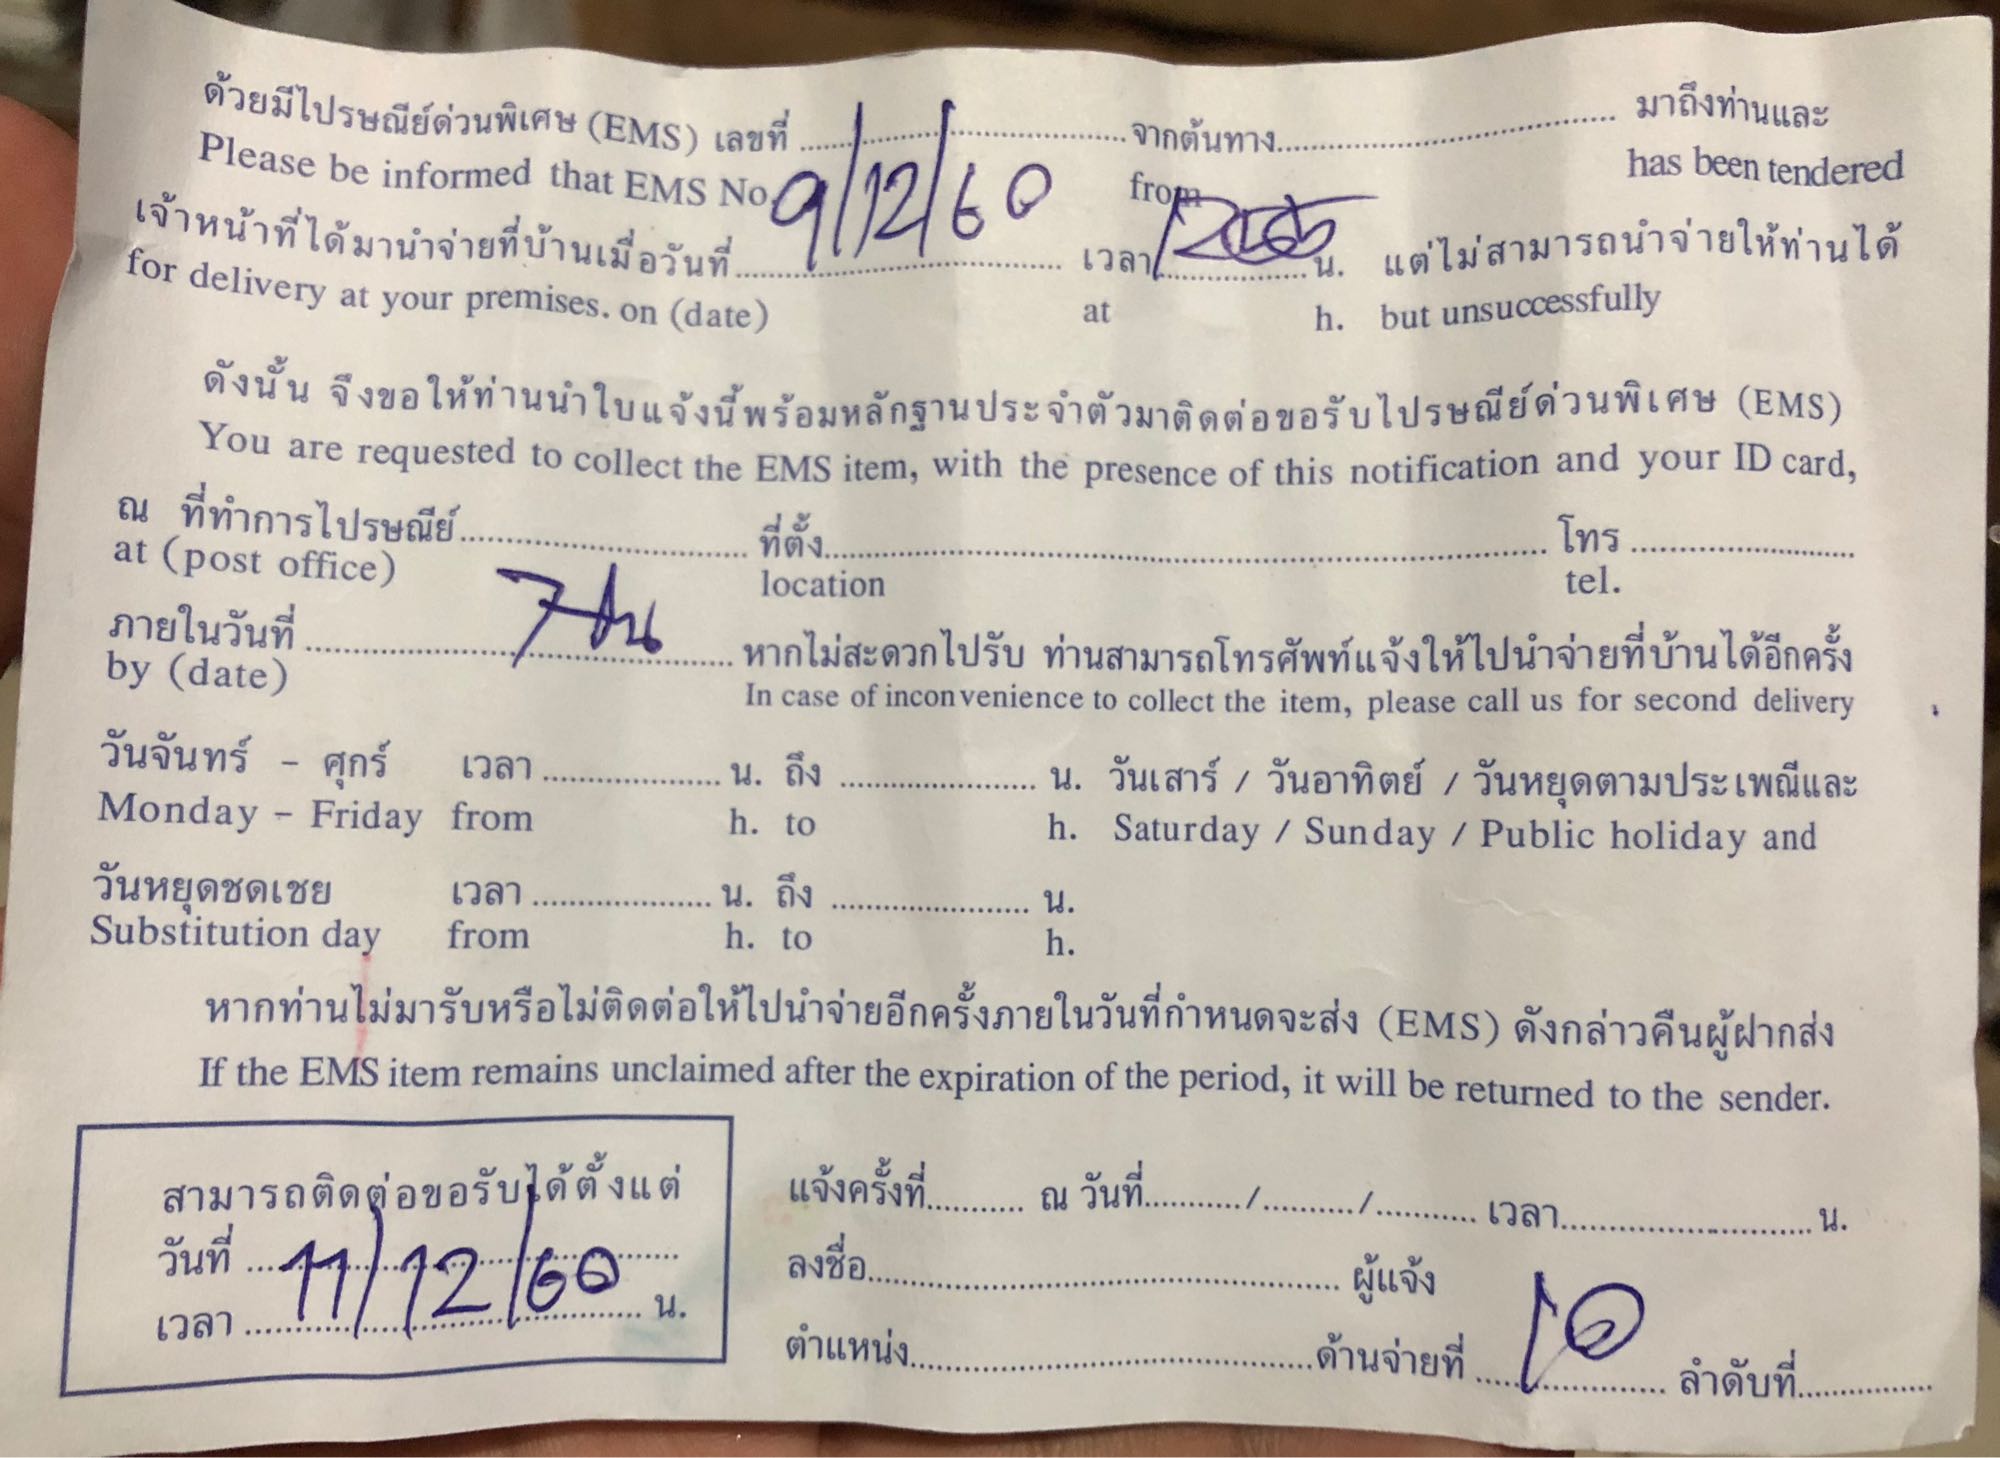 ด้วยมีไปรษณีย์ด่วนพิเศษ (EMS) เลขที่ .......... จากต้นทาง .......... มาถึงท่านและ
Please be informed that EMS No. from has been tendered
เจ้าหน้าที่ได้มานำจ่ายที่บ้านเมื่อวันที่ 9/12/60 เวลา .......... น. แต่ไม่สามารถนำจ่ายให้ท่านได้
for delivery at your premises. on (date) at h. but unsuccessfully
ดังนั้น จึงขอให้ท่านนำใบแจ้งนี้พร้อมหลักฐานประจำตัวมาติดต่อขอรับไปรษณีย์ด่วนพิเศษ (EMS)
You are requested to collect the EMS item, with the presence of this notification and your ID card,
ณ ที่ทำการไปรษณีย์ .......... ที่ตั้ง .......... โทร ..........
at (post office) location tel.
ภายในวันที่ 7 .......... หากไม่สะดวกไปรับ ท่านสามารถโทรศัพท์แจ้งให้ไปนำจ่ายที่บ้านได้อีกครั้ง
by (date) In case of inconvenience to collect the item, please call us for second delivery
วันจันทร์ - ศุกร์ เวลา .......... น. ถึง .......... น. วันเสาร์ / วันอาทิตย์ / วันหยุดตามประเพณีและ
Monday - Friday from h. to h. Saturday / Sunday / Public holiday and
วันหยุดชดเชย เวลา .......... น. ถึง .......... น.
Substitution day from h. to h.
หากท่านไม่มารับหรือไม่ติดต่อให้ไปนำจ่ายอีกครั้งภายในวันที่กำหนดจะส่ง (EMS) ดังกล่าวคืนผู้ฝากส่ง
If the EMS item remains unclaimed after the expiration of the period, it will be returned to the sender.
สามารถติดต่อขอรับได้ตั้งแต่
วันที่ 11/12/60
เวลา .......... น.
แจ้งครั้งที่ .......... ณ วันที่ ........../........../.......... เวลา .......... น.
ลงชื่อ .......... ผู้แจ้ง
ตำแหน่ง .......... ด้านจ่ายที่ .......... ลำดับที่ ..........